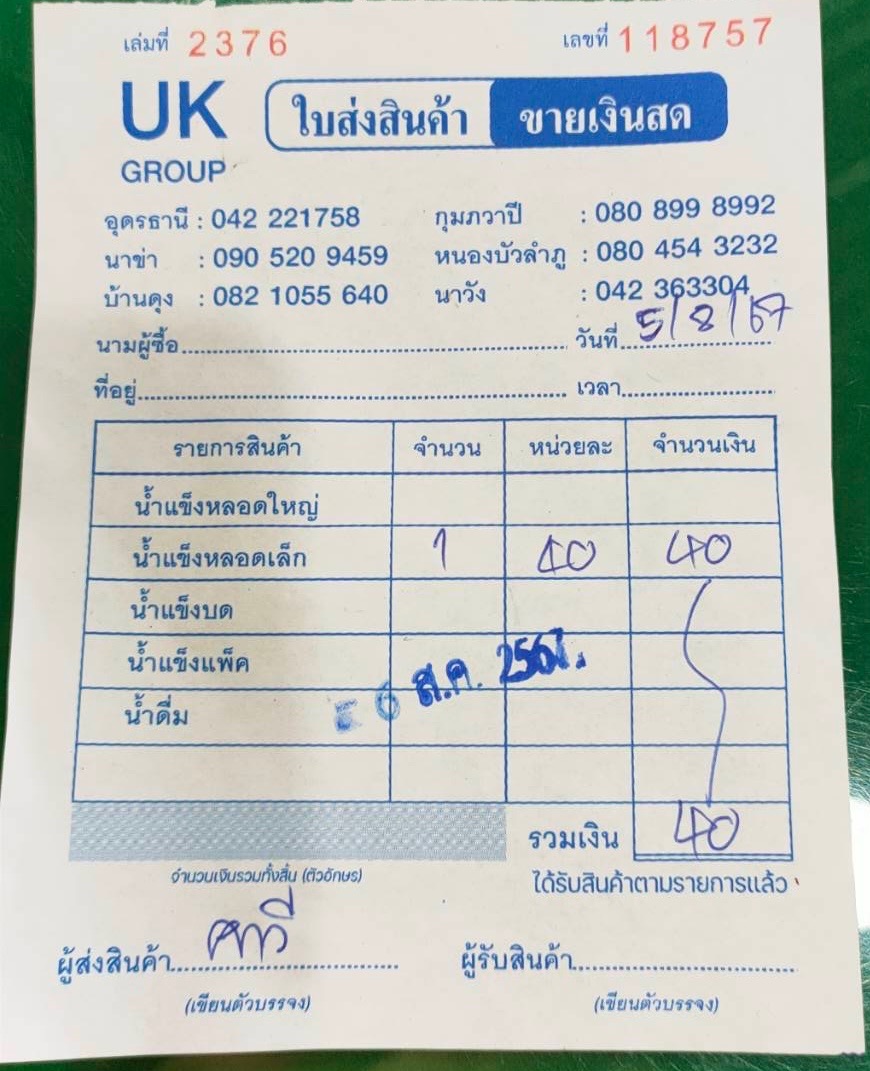 เล่มที่ 2376 เลขที่ 118757
UK GROUP ใบส่งสินค้า ขายเงินสด
อุดรธานี : 042 221758 กุมภวาปี : 080 899 8992
นาข่า : 090 520 9459 หนองบัวลำภู : 080 454 3232
บ้านดุง : 082 1055 640 นาวัง : 042 363304
นามผู้ซื้อ วันที่ 5/8/67
ที่อยู่ เวลา
รายการสินค้า จำนวน หน่วยละ จำนวนเงิน
น้ำแข็งหลอดใหญ่
น้ำแข็งหลอดเล็ก 1 40 40
น้ำแข็งบด
น้ำแข็งแพ็ค
6 ส.ค. 2567
น้ำดื่ม
รวมเงิน 40
จำนวนเงินรวมทั้งสิ้น (ตัวอักษร) ได้รับสินค้าตามรายการแล้ว
ผู้ส่งสินค้า ผู้รับสินค้า
(เขียนตัวบรรจง) (เขียนตัวบรรจง)